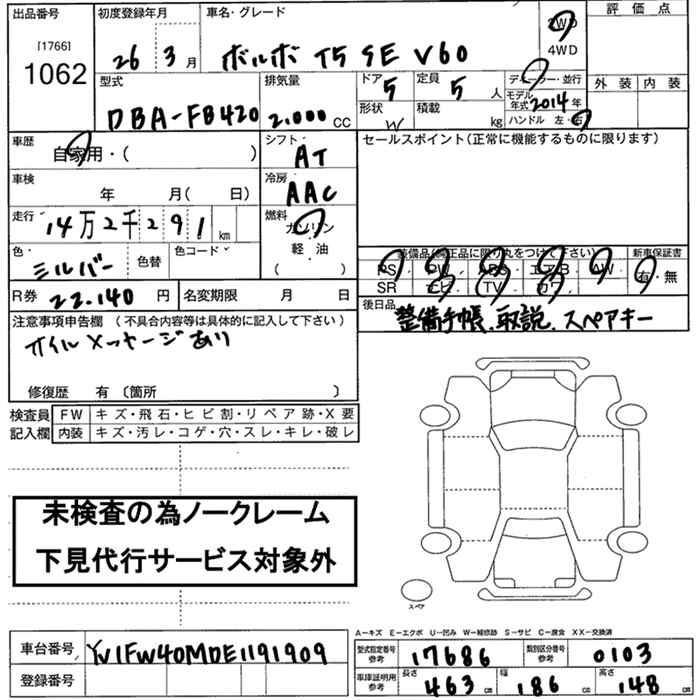 出品番号 初度登録年月 車名・グレード 2WD 評価点
[1766] 26年3月 ボルボ T5 SE V60 4WD
1062 型式 排気量 ドア 5 定員 5人 ディーラー・並行 外装 内装
DBA-FB420 2.000 CC 形状 W 積載 kg モデル年式 2014年
ハンドル 左・右
車歴 自家用・( ) シフト AT セールスポイント(正常に機能するものに限ります)
車検 年 月( 日) 冷房 AAC
走行 14万2千291 km 燃料 ガソリン
軽・油
( )
色 シルバー 色替 色コード 装備品(純正品に限り丸をつけて下さい) 新車保証書
PS PW ABS エアB AW 有・無
SR ナビ TV カワ
R券 22.140円 名変期限 月 日 後日品
整備手帳、取説、スペアキー
注意事項申告欄 (不具合内容等は具体的に記入して下さい)
オイルメッセージあり
修復歴 有 〔箇所 〕
検査員 FW キズ・飛石・ヒビ割・リペア跡・X要
記入欄 内装 キズ・汚レ・コゲ・穴・スレ・キレ・破レ
未検査の為ノークレーム
下見代行サービス対象外
スペア
A-キズ E-エクボ U-凹み W-補修跡 S-サビ C-腐食 XX-交換済
車台番号 YV1FW40MDE1191909 型式指定番号 参考 17686 類別区分番号 参考 0103
登録番号 車庫証明用 参考 長さ 463 cm 幅 186 cm 高さ 148 cm